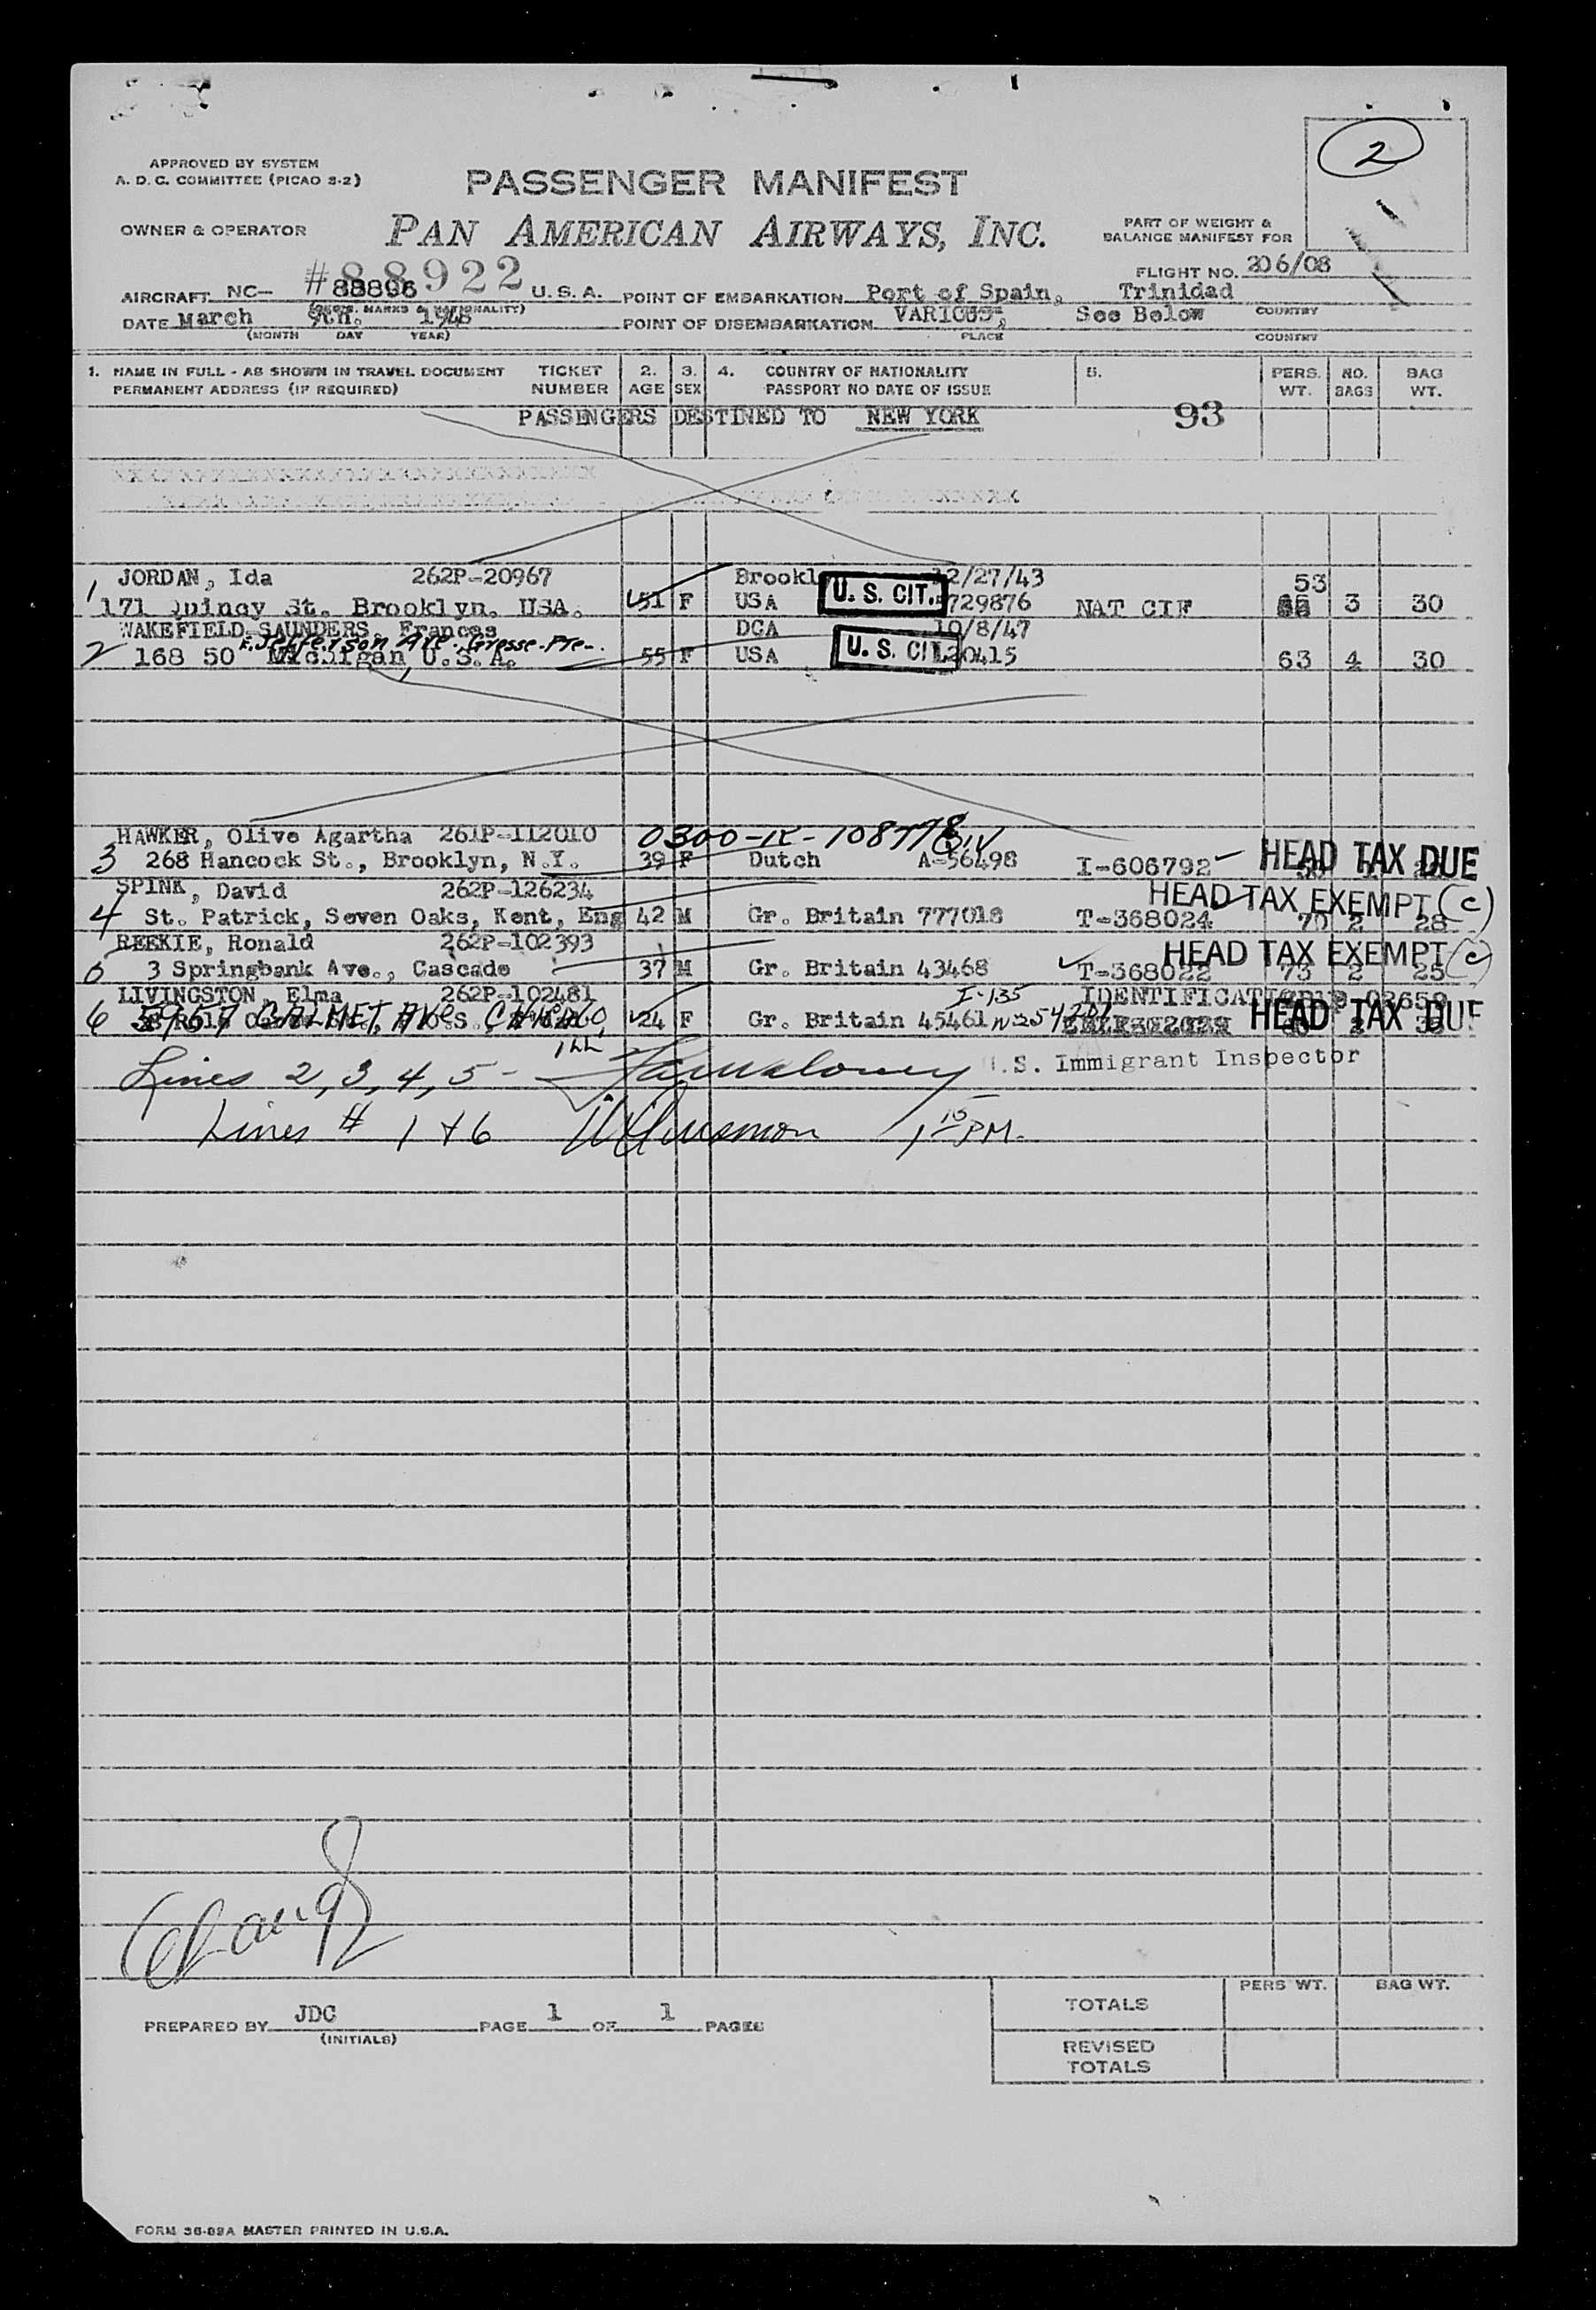 2
APPROVED BY SYSTEM
A. D. C. COMMITTEE (PICAO S-2)
PASSENGER MANIFEST
OWNER & OPERATOR PAN AMERICAN AIRWAYS, INC.
PART OF WEIGHT &
BALANCE MANIFEST FOR
FLIGHT NO. 206/08
AIRCRAFT NC- #88922 U.S.A. POINT OF EMBARKATION Port of Spain, Trinidad
COUNTRY
DATE March 9th. 1948 POINT OF DISEMBARKATION VARIOUS, See Below
(MONTH DAY YEAR) PLACE COUNTRY
1. NAME IN FULL - AS SHOWN IN TRAVEL DOCUMENT TICKET 2. 3. 4. COUNTRY OF NATIONALITY 5. PERS. NO. BAG
PERMANENT ADDRESS (IF REQUIRED) NUMBER AGE SEX PASSPORT NO DATE OF ISSUE WT. BAGS WT.
PASSENGERS DESTINED TO NEW YORK 93
JORDAN, Ida 262P-20967 12/27/43 53
1 171 Quincy St. Brooklyn. USA. 51 F USA U. S. CIT. 729876 NAT CIF 3 30
WAKEFIELD SAUNDERS, Frances DCA 10/8/47
E. Jefferson Ave. Grosse-Pte-.
2 168 50 Michigan, U.S.A. 55 F USA U. S. CIT 20415 63 4 30
HAWKER, Olive Agartha 261P-112010 0300-1R-108778
3 268 Hancock St., Brooklyn, N.Y. 39 F Dutch A-56498 I-606792 HEAD TAX DUE
SPINK, David 262P-126234 HEAD TAX EXEMPT (c)
4 St. Patrick, Seven Oaks, Kent, Eng 42 M Gr. Britain 777018 T-368024 70 2 28
REEKIE, Ronald 262P-102393 HEAD TAX EXEMPT (c)
3 Springbank Ave., Cascade 37 M Gr. Britain 43468 T-368022 73 2 25
LIVINGSTON, Elma 262P-102481 I-135 IDENTIFICATION
6 CALMET AVE. CHICAGO, 24 F Gr. Britain 45461 HEAD TAX DUE
ILL
Lines 2, 3, 4, 5 - U.S. Immigrant Inspector
Lines # 1 + 6 1 15 PM.
PREPARED BY JDC PAGE 1 OF 1 PAGES
(INITIALS)
PERS WT. BAG WT.
TOTALS
REVISED
TOTALS
FORM 36-89A MASTER PRINTED IN U.S.A.